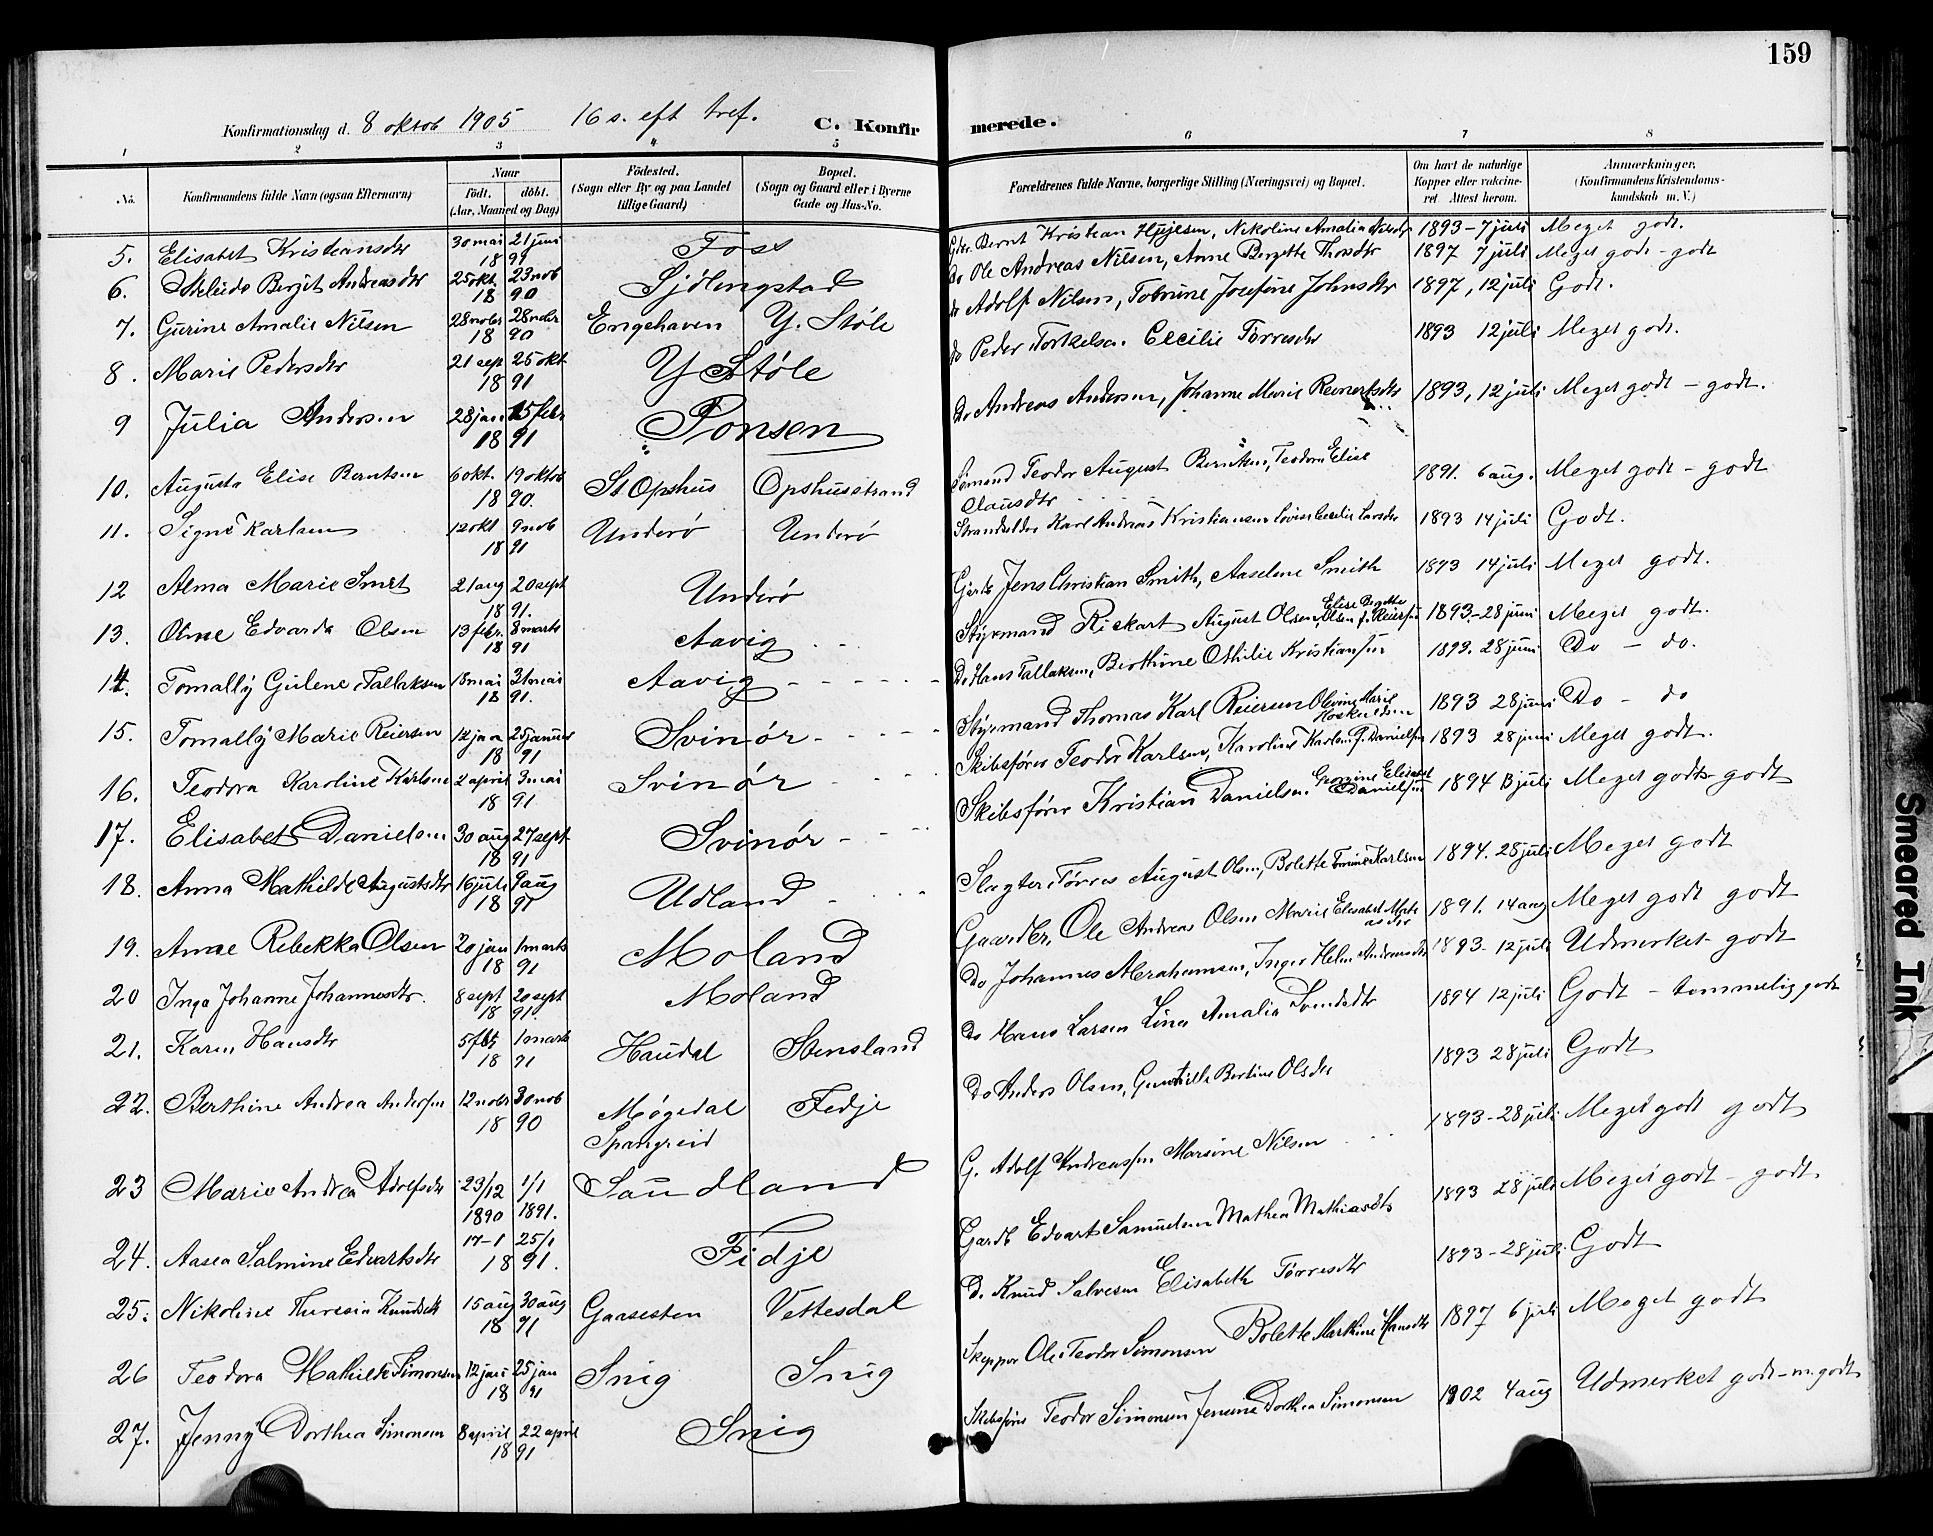 159
Konfirmationsdag d. 8 oktob 1905 16 s. eft tref. C. Konfirmerede.
1 2 3 4 5 6 7 8
No. Konfirmandens fulde Navn (ogsaa Efternavn) Naar Födt. döbt. (Aar, Maaned og Dag) Födested. (Sogn eller By og paa Landet tillige Gaard) Bopæl. (Sogn og Gaard eller i Byerne Gade og Hus-No. Forældrenes fulde Navne, borgerlige Stilling (Næringsvei) og Bopæl. Om havt de naturlige Kopper eller vakcineret. Attest herom. Anmærkninger. (Konfirmandens Kristendomskundskab m. V.)
5. Elisabet Kristiansdtr 30 mai 21 juni 1891 Foss Bernt Kristian Nikoline Amalia 1893 - 7 juli Meget godt.
6. Berjit Andreasdtr 25 okt. 23 nob 1890 Sjölingstad Do Ole Andreas Nilsen, Anne Bergette Thosdtr 1897 7 juli Meget godt - godt
7. Gurine Amalie Nilsen 28 nobr 28 nobr 1890 Engehaven Y. Støle do Adolf Nilsen, Tobrine Josefine Johnsdtr 1897, 12 juli Godt.
8. Marie Pedersdtr 21 sep 25 okt 1891 Y Støle do Peder Torkelsen. Cecilie Tørresdtr 1893 12 juli Meget godt.
9 Julia Andersen 28 jan 15 febr 1891 Ponsen Do Andreas Andersen, Johanne Marie Reinertsdtr 1893, 12 juli Meget godt - godt.
10. Augusta Elise Berntsen 6 okt. 19 oktob 1890. St Opshus Opshusstrand Sømand Teodor August Berntsen, Teodora Elise Clausdtr 1891. 6 aug. Meget godt - godt
11. Signe Karlsen 12 okt 9 nob 1891 Underö Underö Strandsidder Karl Andreas Kristiansen Lovise Cecilie Larsdtr 1893 14 juli Godt.
12 Alma Marie Smit 21 aug 20 sept 1891. Underö Gårdb Jens Christian Smith, Aaselene Smith 1893 14 juli Meget godt.
13. Olme Edvarda Olsen 13 febr. 8 marts 1891 Aavig Styrmand Rickart August Olsen, Elise Bergitte Olsen f. Reiersen 1893 - 28 juni Meget godt.
14. Tomally Gulene Tallaksen 18 mai 31 mai 1891. Aavig Do Hans Tallaksen, Berthine Othilie Kristiansen 1893. 28 juni Do - do.
15. Tomally Marie Reiersen 12 jan 25 januar 1891 Svinör Styrmand Thomas Karl Reiersen Olevine Marie 1893 28 juni Do - do
16. Teodora Karoline Karlsen 2 april 3 mai 1891 Svinör Skibsfører Teodor Karlsen, Karoline Karlsen f. Danielsen 1893 28 juni Meget godt.
17. Elisabet Danielsen 30 aug 27 sept 1891 Svinör Skibsfører Kristian Danielsen. Gronine Elisabet Danielsen 1894 13 juli Meget godt - godt
18. Anna Mathilde Augustsdtr 16 juli 9 aug 1891 Udland Slagter Tørres August Olsen, Bolette Karlsen 1894. 28 juli Meget godt
19. Anne Rebekka Olsen 20 jan 1 marts 1891 Moland Gaardbr. Ole Andreas Olsen Marie Elisabet 1891. 14 aug Meget godt godt
20 Inga Johanne Johannesdtr. 8 sept 20 sept 1891. Moland Do Johannes Abrahamsen, Inger Helen Andreasdtr 1893 - 12 juli Udmerket - godt
21. Karen Hansdtr 5 feb 1 marts 1891 Haudal Stensland Do Hans Larsen Lina Amalia Svendsdtr 1894 12 juli Godt - temmelig godt
22. Berthine Andrea Andersen 12 nobr 30 nob 1890 Møgedal Spangreid Fedje Do Anders Olsen, Gunhilde Bertine Olsdtr 1893 28 juli Godt
23 Marie Andrea Adolfsdtr 23/12 1890 1/1 1891. Saudland G. Adolf Andreassen Marsine Nilsen 1893 - 28 juli Meget godt godt
24. Aasea Salmine Edvartsdtr 17-1 25/1 1891. Fidje Gardb Edvart Samuelsen Mathea Mathiasdtr 1893 28 juli Meget godt - godt
25. Nikoline Theresia Knudsdtr 15 aug 30 aug 1891 Gaasesten Vettesdal D. Knud Salvesen Elisabeth Tørresdtr 1893 - 28 juli Godt
26 Teodora Mathilde Simonsen 12 jan 25 jan 1891 Snig Snig Skipper Ole Teodor Simonsen Bolette Marthine Hansdtr 1897 6 juli Meget godt
27. Jenny Dorthea Simonsen 8 april 22 april 1891 Snig Skibsförer Teodor Simonsen Jensine Dorthea Simonsen 1902 4 aug Udmerket godt - m. godt
Smeared Ink